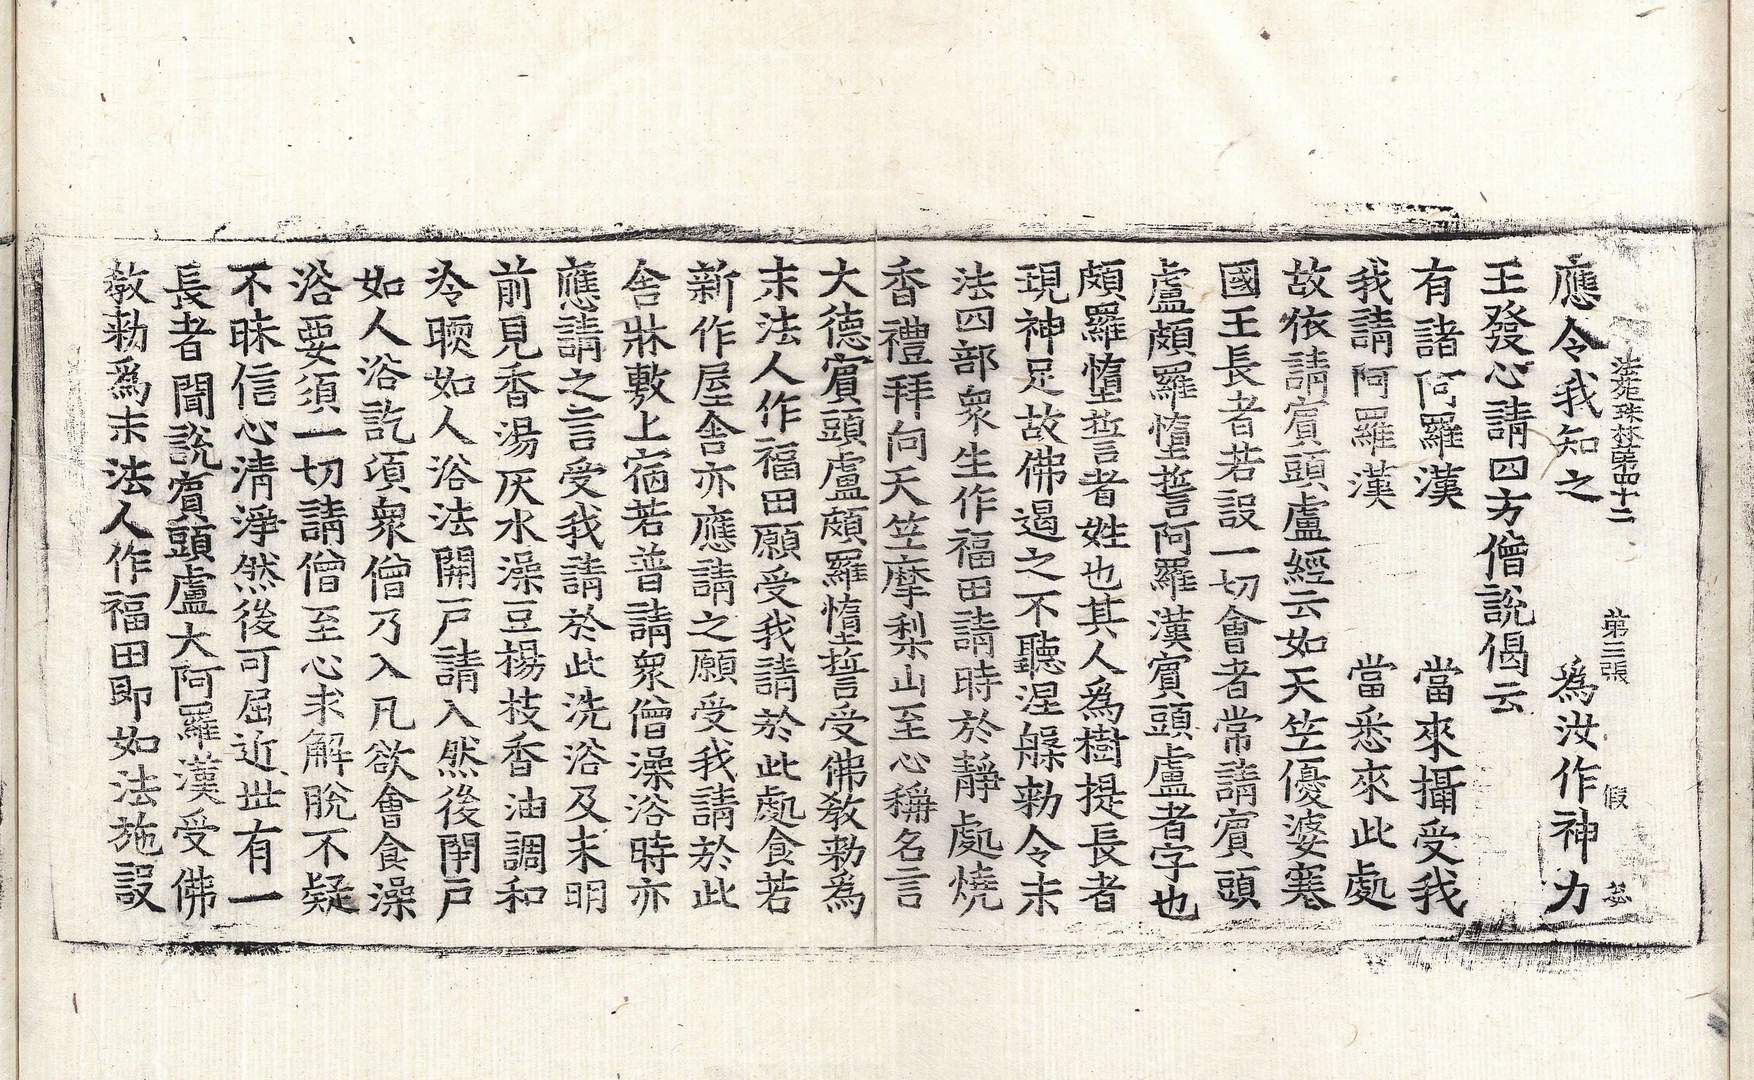 法苑珠林第四十二 第三張 假
應令我知之 爲汝作神力
王發心請四方僧說偈云
有諸阿羅漢 當來攝受我
我請阿羅漢 當悉來此處
故依請賔頭盧經云如天竺優婆塞
國王長者若設一切會者常請賔頭
盧頗羅惰誓阿羅漢賔頭盧者字也
頗羅惰誓者姓也其人爲樹提長者
現神足故佛遏之不聽涅槃勑令末
法四部衆生作福田請時於靜處燒
香禮拜向天竺摩梨山至心稱名言
大德賔頭盧頗羅惰誓受佛教勑爲
末法人作福田願受我請於此處食若
新作屋舍亦應請之願受我請於此
舍牀敷上宿若普請衆僧澡浴時亦
應請之言受我請於此洗浴及末明
前見香湯灰水澡豆楊枝香油調和
冷煗如人浴法開戶請入然後閇戶
如人浴訖頃衆僧乃入凡欲會食澡
浴要須一切請僧至心求解脫不疑
不昧信心淸淨然後可屈近世有一
長者聞說賔頭盧大阿羅漢受佛
敎勑爲末法人作福田即如法施設